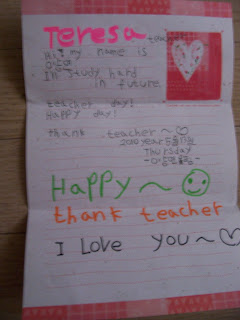 Teresa teacher
Hi! my name is
In study hard
in future
teacher day!
Happy day!
thank teacher~♡
2010 year 5月13日
Thursday
Happy~☺
thank teacher
I Love you~♡